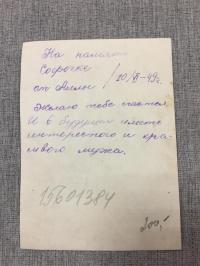 На память
Софочке
от Аллы /20/VI-49г.
Желаю тебе счастья
И в будущем иметь
интересного и кра-
сивого мужа.
15601384
300,-